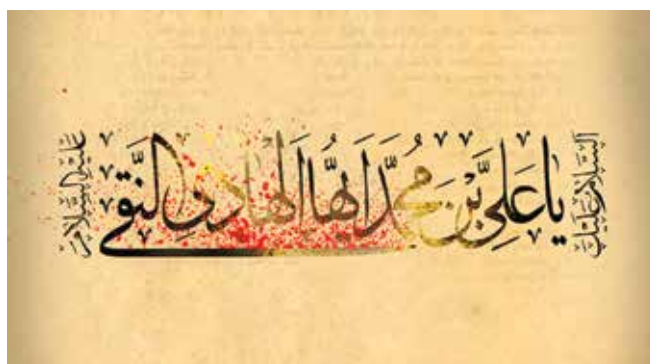 السَّلامُ عَلَيْكَ
يا عَلِيَّ بْنَ مُحَمَّدٍ اَيُّهَا الهادي النَّقي
عَلَيْهِ السَّلام